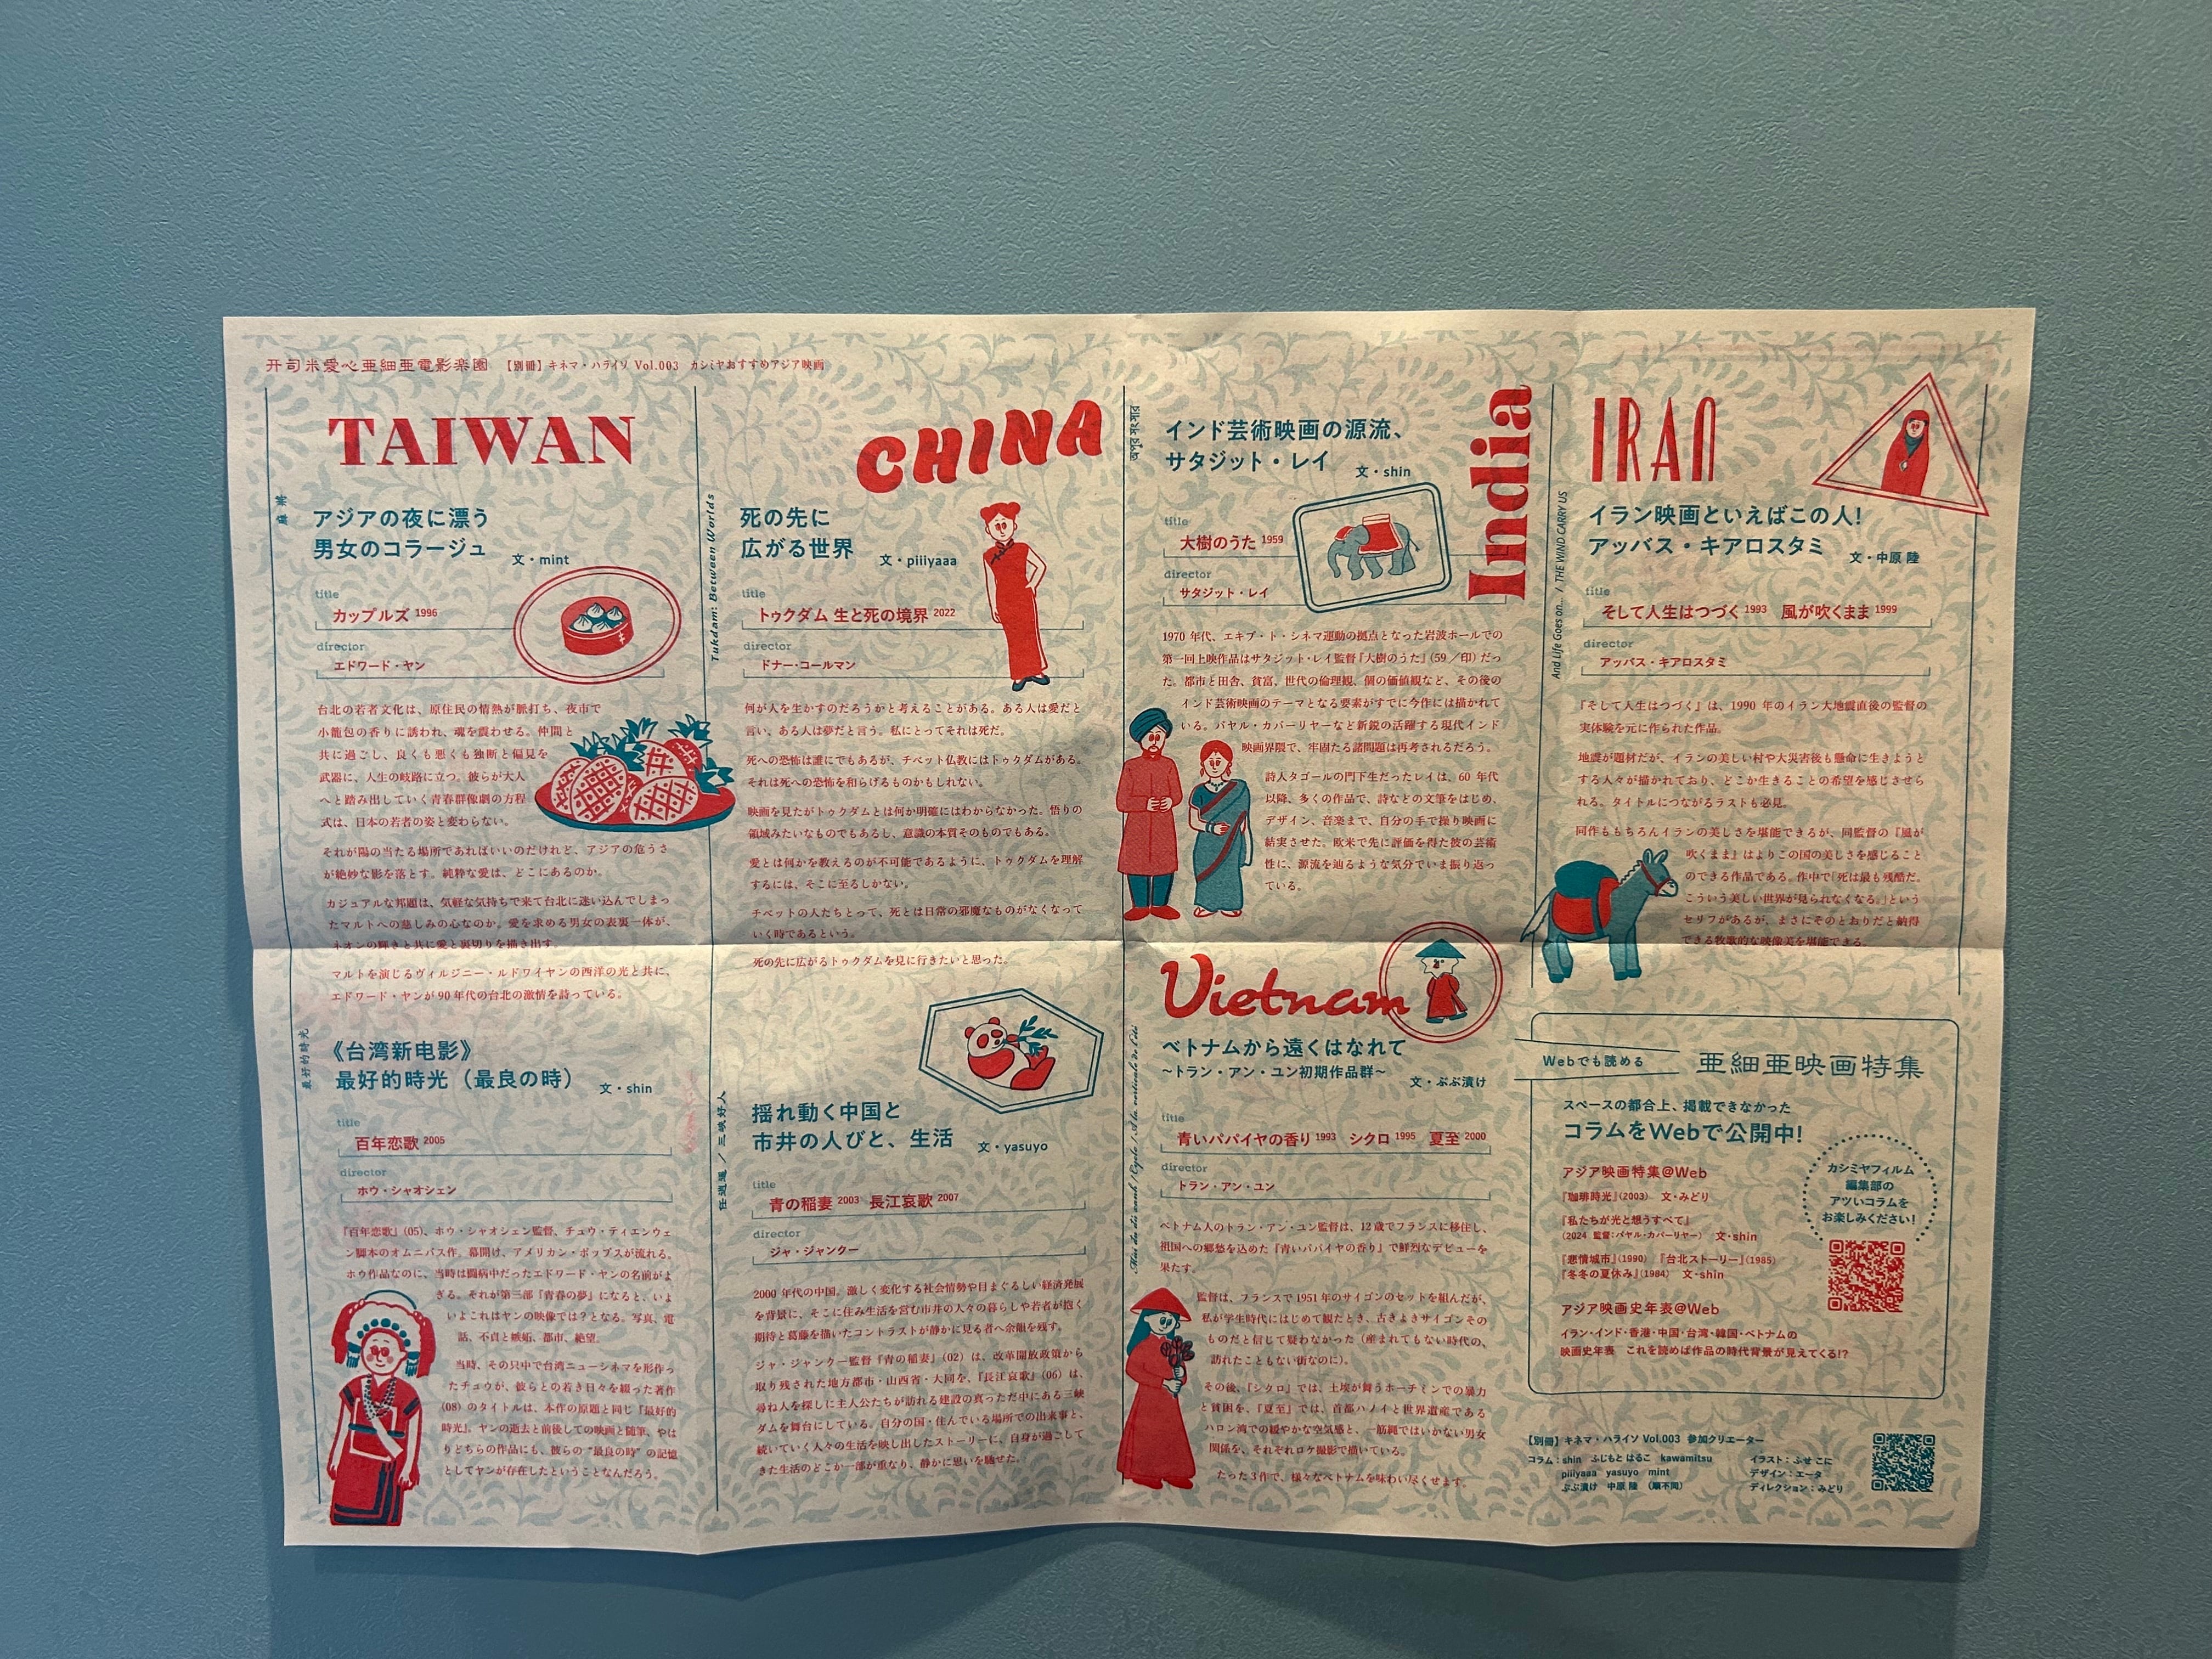 开司米愛心亜細亜電影楽園 【別冊】キネマ・ハライソ Vol.003 カシミヤおすすめアジア映画
TAIWAN
麻將
アジアの夜に漂う
男女のコラージュ 文・mint
title
カップルズ 1996
director
エドワード・ヤン
台北の若者文化は、原住民の情熱が脈打ち、夜市で
小籠包の香りに誘われ、魂を震わせる。仲間と
共に過ごし、良くも悪くも独断と偏見を
武器に、人生の岐路に立つ。彼らが大人
へと踏み出していく青春群像劇の方程
式は、日本の若者の姿と変わらない。
それが陽の当たる場所であればいいのだけれど、アジアの危うさ
が絶妙な影を落とす。純粋な愛は、どこにあるのか。
カジュアルな邦題は、気軽な気持ちで来て台北に迷い込んでしまっ
たマルトへの慈しみの心なのか。愛を求める男女の表裏一体が、
ネオンの輝きと共に愛と裏切りを描き出す。
マルトを演じるヴィルジニー・ルドワイヤンの西洋の光と共に、
エドワード・ヤンが90年代の台北の激情を詩っている。
最好的時光
《台湾新电影》
最好的時光（最良の時） 文・shin
title
百年恋歌 2005
director
ホウ・シャオシェン
『百年恋歌』（05）、ホウ・シャオシェン監督、チュウ・ティエンウェ
ン脚本のオムニバス作。幕開け、アメリカン・ポップスが流れる。
ホウ作品なのに、当時は闘病中だったエドワード・ヤンの名前がよ
ぎる。それが第三部『青春の夢』になると、いよ
いよこれはヤンの映像では？となる。写真、電
話、不貞と嫉妬、都市、絶望。
当時、その只中で台湾ニューシネマを形作っ
たチュウが、彼らとの若き日々を綴った著作
（08）のタイトルは、本作の原題と同じ『最好的
時光』。ヤンの逝去と前後しての映画と随筆、やは
りどちらの作品にも、彼らの“最良の時”の記憶
としてヤンが存在したということなんだろう。
CHINA
Tukdam: Between Worlds
死の先に
広がる世界 文・piiiyaaa
title
トゥクダム 生と死の境界 2022
director
ドナー・コールマン
何が人を生かすのだろうかと考えることがある。ある人は愛だと
言い、ある人は夢だと言う。私にとってそれは死だ。
死への恐怖は誰にでもあるが、チベット仏教にはトゥクダムがある。
それは死への恐怖を和らげるものかもしれない。
映画を見たがトゥクダムとは何か明確にはわからなかった。悟りの
領域みたいなものでもあるし、意識の本質そのものでもある。
愛とは何かを教えるのが不可能であるように、トゥクダムを理解
するには、そこに至るしかない。
チベットの人たちとって、死とは日常の邪魔なものがなくなって
いく時であるという。
死の先に広がるトゥクダムを見に行きたいと思った。
任逍遥 / 三峡好人
揺れ動く中国と
市井の人びと、生活 文・yasuyo
title
青の稲妻 2003 長江哀歌 2007
director
ジャ・ジャンクー
2000年代の中国。激しく変化する社会情勢や目まぐるしい経済発展
を背景に、そこに住み生活を営む市井の人々の暮らしや若者が抱く
期待と葛藤を描いたコントラストが静かに見る者へ余韻を残す。
ジャ・ジャンクー監督『青の稲妻』（02）は、改革開放政策から
取り残された地方都市・山西省・大同を、『長江哀歌』（06）は、
尋ね人を探しに主人公たちが訪れる建設の真っただ中にある三峡
ダムを舞台にしている。自分の国・住んでいる場所での出来事と、
続いていく人々の生活を映し出したストーリーに、自身が過ごして
きた生活のどこか一部が重なり、静かに思いを馳せた。
India
অপুর সংসার
インド芸術映画の源流、
サタジット・レイ 文・shin
title
大樹のうた 1959
director
サタジット・レイ
1970年代、エキプ・ド・シネマ運動の拠点となった岩波ホールでの
第一回上映作品はサタジット・レイ監督『大樹のうた』（59／印）だっ
た。都市と田舎、貧富、世代の倫理観、個の価値観など、その後の
インド芸術映画のテーマとなる要素がすでに今作には描かれて
いる。パヤル・カパーリヤーなど新鋭の活躍する現代インド
映画界隈で、牢固たる諸問題は再考されるだろう。
詩人タゴールの門下生だったレイは、60年代
以降、多くの作品で、詩などの文筆をはじめ、
デザイン、音楽まで、自分の手で操り映画に
結実させた。欧米で先に評価を得た彼の芸術
性に、源流を辿るような気分でいま振り返っ
ている。
Vietnam
ベトナムから遠くはなれて
～トラン・アン・ユン初期作品群～ 文・ぶぶ漬け
title
青いパパイヤの香り 1993 シクロ 1995 夏至 2000
director
トラン・アン・ユン
ベトナム人のトラン・アン・ユン監督は、12歳でフランスに移住し、
祖国への郷愁を込めた『青いパパイヤの香り』で鮮烈なデビューを
果たす。
監督は、フランスで1951年のサイゴンのセットを組んだが、
私が学生時代にはじめて観たとき、古きよきサイゴンその
ものだと信じて疑わなかった（産まれてもない時代の、
訪れたこともない街なのに）。
その後、『シクロ』では、土埃が舞うホーチミンでの暴力
と貧困を、『夏至』では、首都ハノイと世界遺産である
ハロン湾での緩やかな空気感と、一筋縄ではいかない男女
関係を、それぞれロケ撮影で描いている。
たった3作で、様々なベトナムを味わい尽くせます。
IRAN
And Life Goes on... / THE WIND CARRY US
イラン映画といえばこの人！
アッバス・キアロスタミ 文・中原 陸
title
そして人生はつづく 1993 風が吹くまま 1999
director
アッバス・キアロスタミ
『そして人生はつづく』は、1990年のイラン大地震直後の監督の
実体験を元に作られた作品。
地震が題材だが、イランの美しい村や大災害後も懸命に生きようと
する人々が描かれており、どこか生きることの希望を感じさせら
れる。タイトルにつながるラストも必見。
同作ももちろんイランの美しさを堪能できるが、同監督の『風が
吹くまま』はよりこの国の美しさを感じること
のできる作品である。作中で「死は最も残酷だ。
こういう美しい世界が見られなくなる。」という
セリフがあるが、まさにそのとおりだと納得
できる牧歌的な映像美を堪能できる。
Webでも読める 亜細亜映画特集
スペースの都合上、掲載できなかった
コラムをWebで公開中！
アジア映画特集@Web
『珈琲時光』（2003） 文・みどり
『私たちが光と想うすべて』
（2024 監督：パヤル・カパーリヤー） 文・shin
『悲情城市』（1990）『台北ストーリー』（1985）
『冬冬の夏休み』（1984） 文・shin
カシミヤフィルム
編集部の
アツいコラムを
お楽しみください！
アジア映画史年表@Web
イラン・インド・香港・中国・台湾・韓国・ベトナムの
映画史年表 これを読めば作品の時代背景が見えてくる!?
【別冊】キネマ・ハライソ Vol.003 参加クリエーター
コラム：shin ふじもと はるこ kawamitsu
piiiyaaa yasuyo mint
ぶぶ漬け 中原 陸 （順不同）
イラスト：ふせ こに
デザイン：エータ
ディレクション：みどり